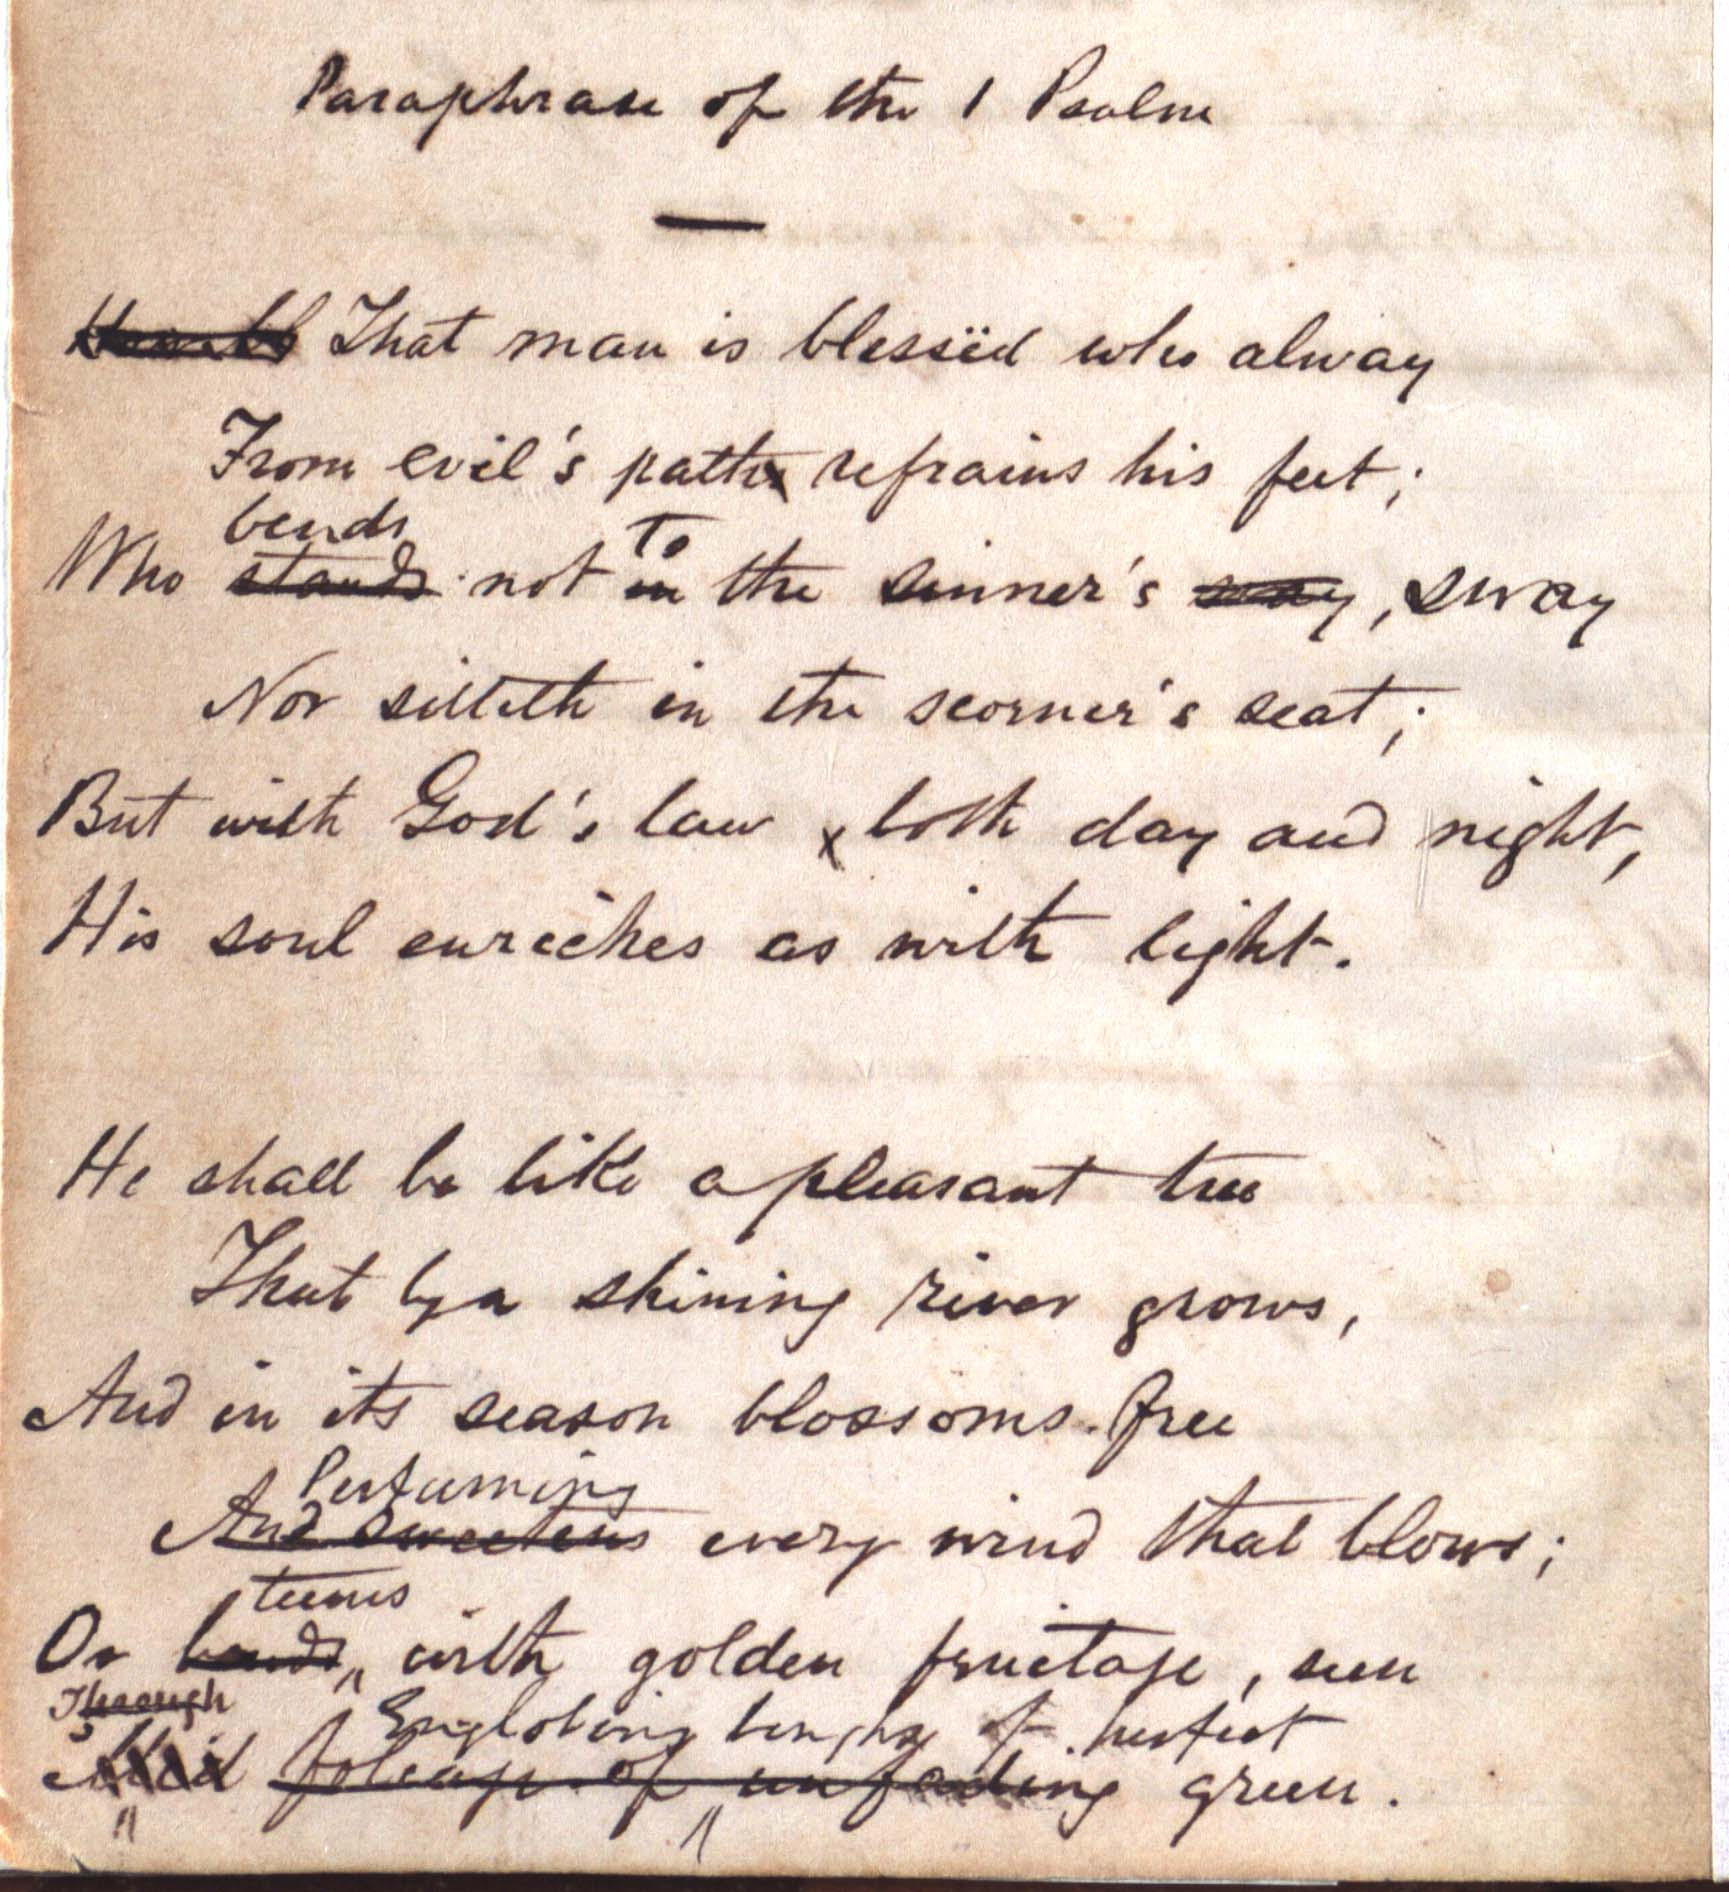 Paraphrase of the 1 Psalm
That man is blessëd who alway
From evil's path refrains his feet;
bends To
Who stands not in the sinner's way, sway
Nor sitteth in the scorner's seat;
But with God's law both day and night,
His soul enriches as with light.
He shall be like a pleasant tree
That by a shining river grows,
And in its season blossoms free
Perfuming
And sweetens every wind that blows;
teems
Or bends, with golden fruitage, seen
Through Englobing boughs of perfect
Mid foliage of unfading green.